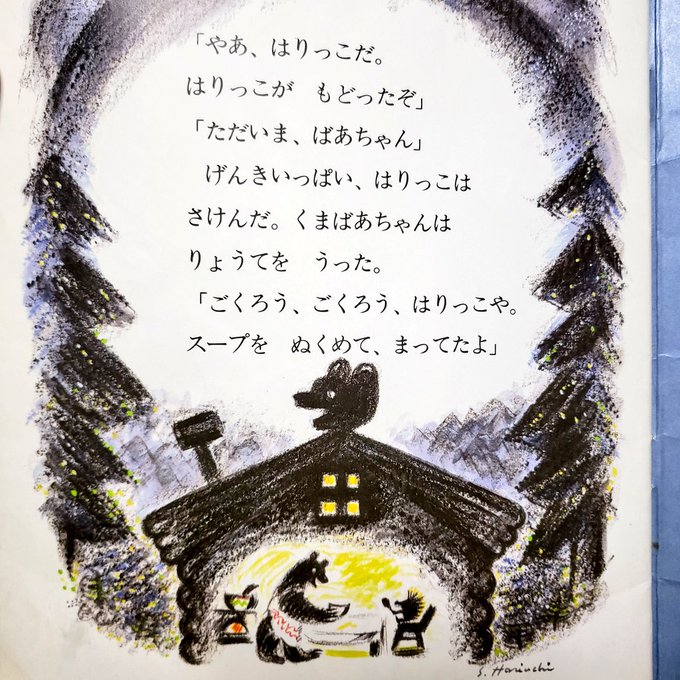 「やあ、はりっこだ。
はりっこが　もどったぞ」
「ただいま、ばあちゃん」
　げんきいっぱい、はりっこは
さけんだ。くまばあちゃんは
りょうてを　うった。
「ごくろう、ごくろう、はりっこや。
スープを　ぬくめて、まってたよ」
S. Horiuchi